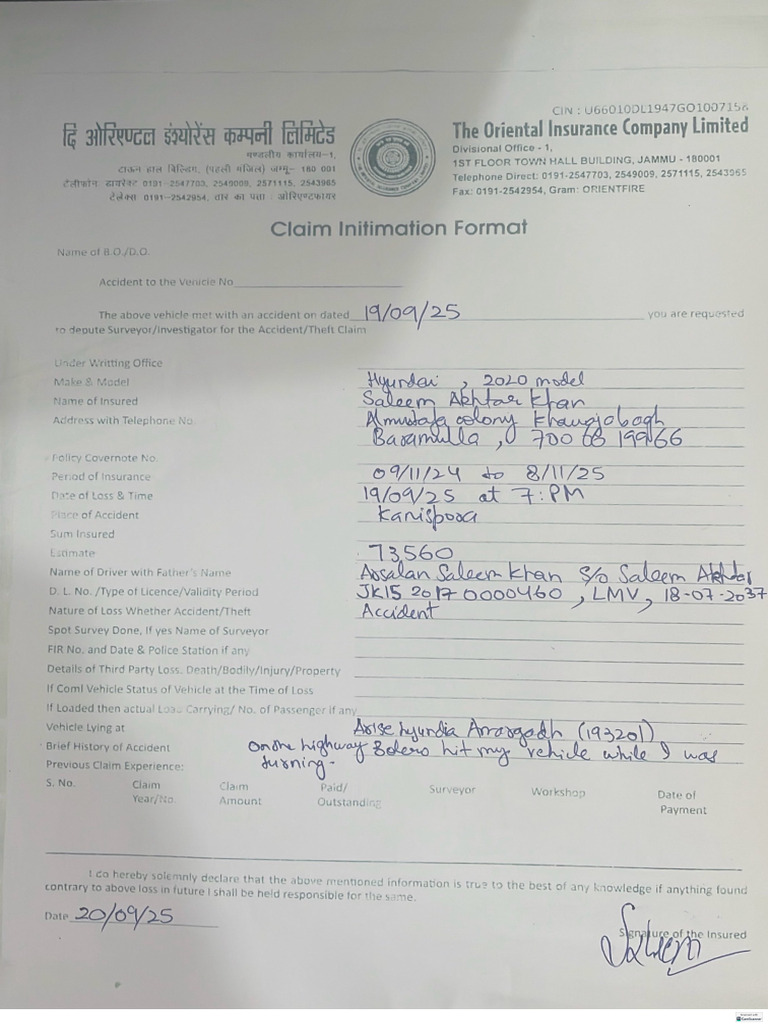 CIN : U66010DL1947GOI007158
दि ओरिएण्टल इंश्योरेंस कम्पनी लिमिटेड
मण्डलीय कार्यालय-1,
टाऊन हाल बिल्डिंग, (पहली मंजिल) जम्मू- 180 001
टेलीफोन: डायरेक्ट 0191-2547703, 2549009, 2571115, 2543965
टेलेक्स 0191-2542954, तार का पता : ओरिएण्टफायर
The Oriental Insurance Company Limited
Divisional Office - 1,
1ST FLOOR TOWN HALL BUILDING, JAMMU - 180001
Telephone Direct: 0191-2547703, 2549009, 2571115, 2543965
Fax: 0191-2542954, Gram: ORIENTFIRE
Claim Initimation Format
Name of B.O./D.O.
Accident to the Venicle No
The above vehicle met with an accident on dated 19/09/25 you are requested
to depute Surveyor/Investigator for the Accident/Theft Claim
Under Writting Office
Make & Model Hyundai , 2020 model
Name of Insured Saleem Akhtar Khan
Address with Telephone No. Almustafa colony
Baramulla , 700 68 199 66
Policy Covernote No.
Period of Insurance 09/11/24 to 8/11/25
Date of Loss & Time 19/09/25 at 7:PM
Place of Accident Kanispora
Sum Insured
Estimate 73,560
Name of Driver with Father's Name Arsalan Saleem Khan S/o Saleem Akhtar
D. L. No. /Type of Licence/Validity Period JK15 2017 0000460 , LMV, 18-07-2037
Nature of Loss Whether Accident/Theft Accident
Spot Survey Done, If yes Name of Surveyor
FIR No. and Date & Police Station if any
Details of Third Party Loss. Death/Bodily/Injury/Property
If Coml Vehicle Status of Vehicle at the Time of Loss
If Loaded then actual Load Carrying/ No. of Passenger if any
Vehicle Lying at Arise hyundia (193201)
Brief History of Accident On the highway Bolero hit my vehicle while I was
turning-
Previous Claim Experience:
S. No. Claim Year/No. Claim Amount Paid/ Outstanding Surveyor Workshop Date of Payment
I do hereby solemnly declare that the above mentioned information is true to the best of any knowledge if anything found
contrary to above loss in future I shall be held responsible for the same.
Date 20/09/25
Signature of the Insured
Saleem